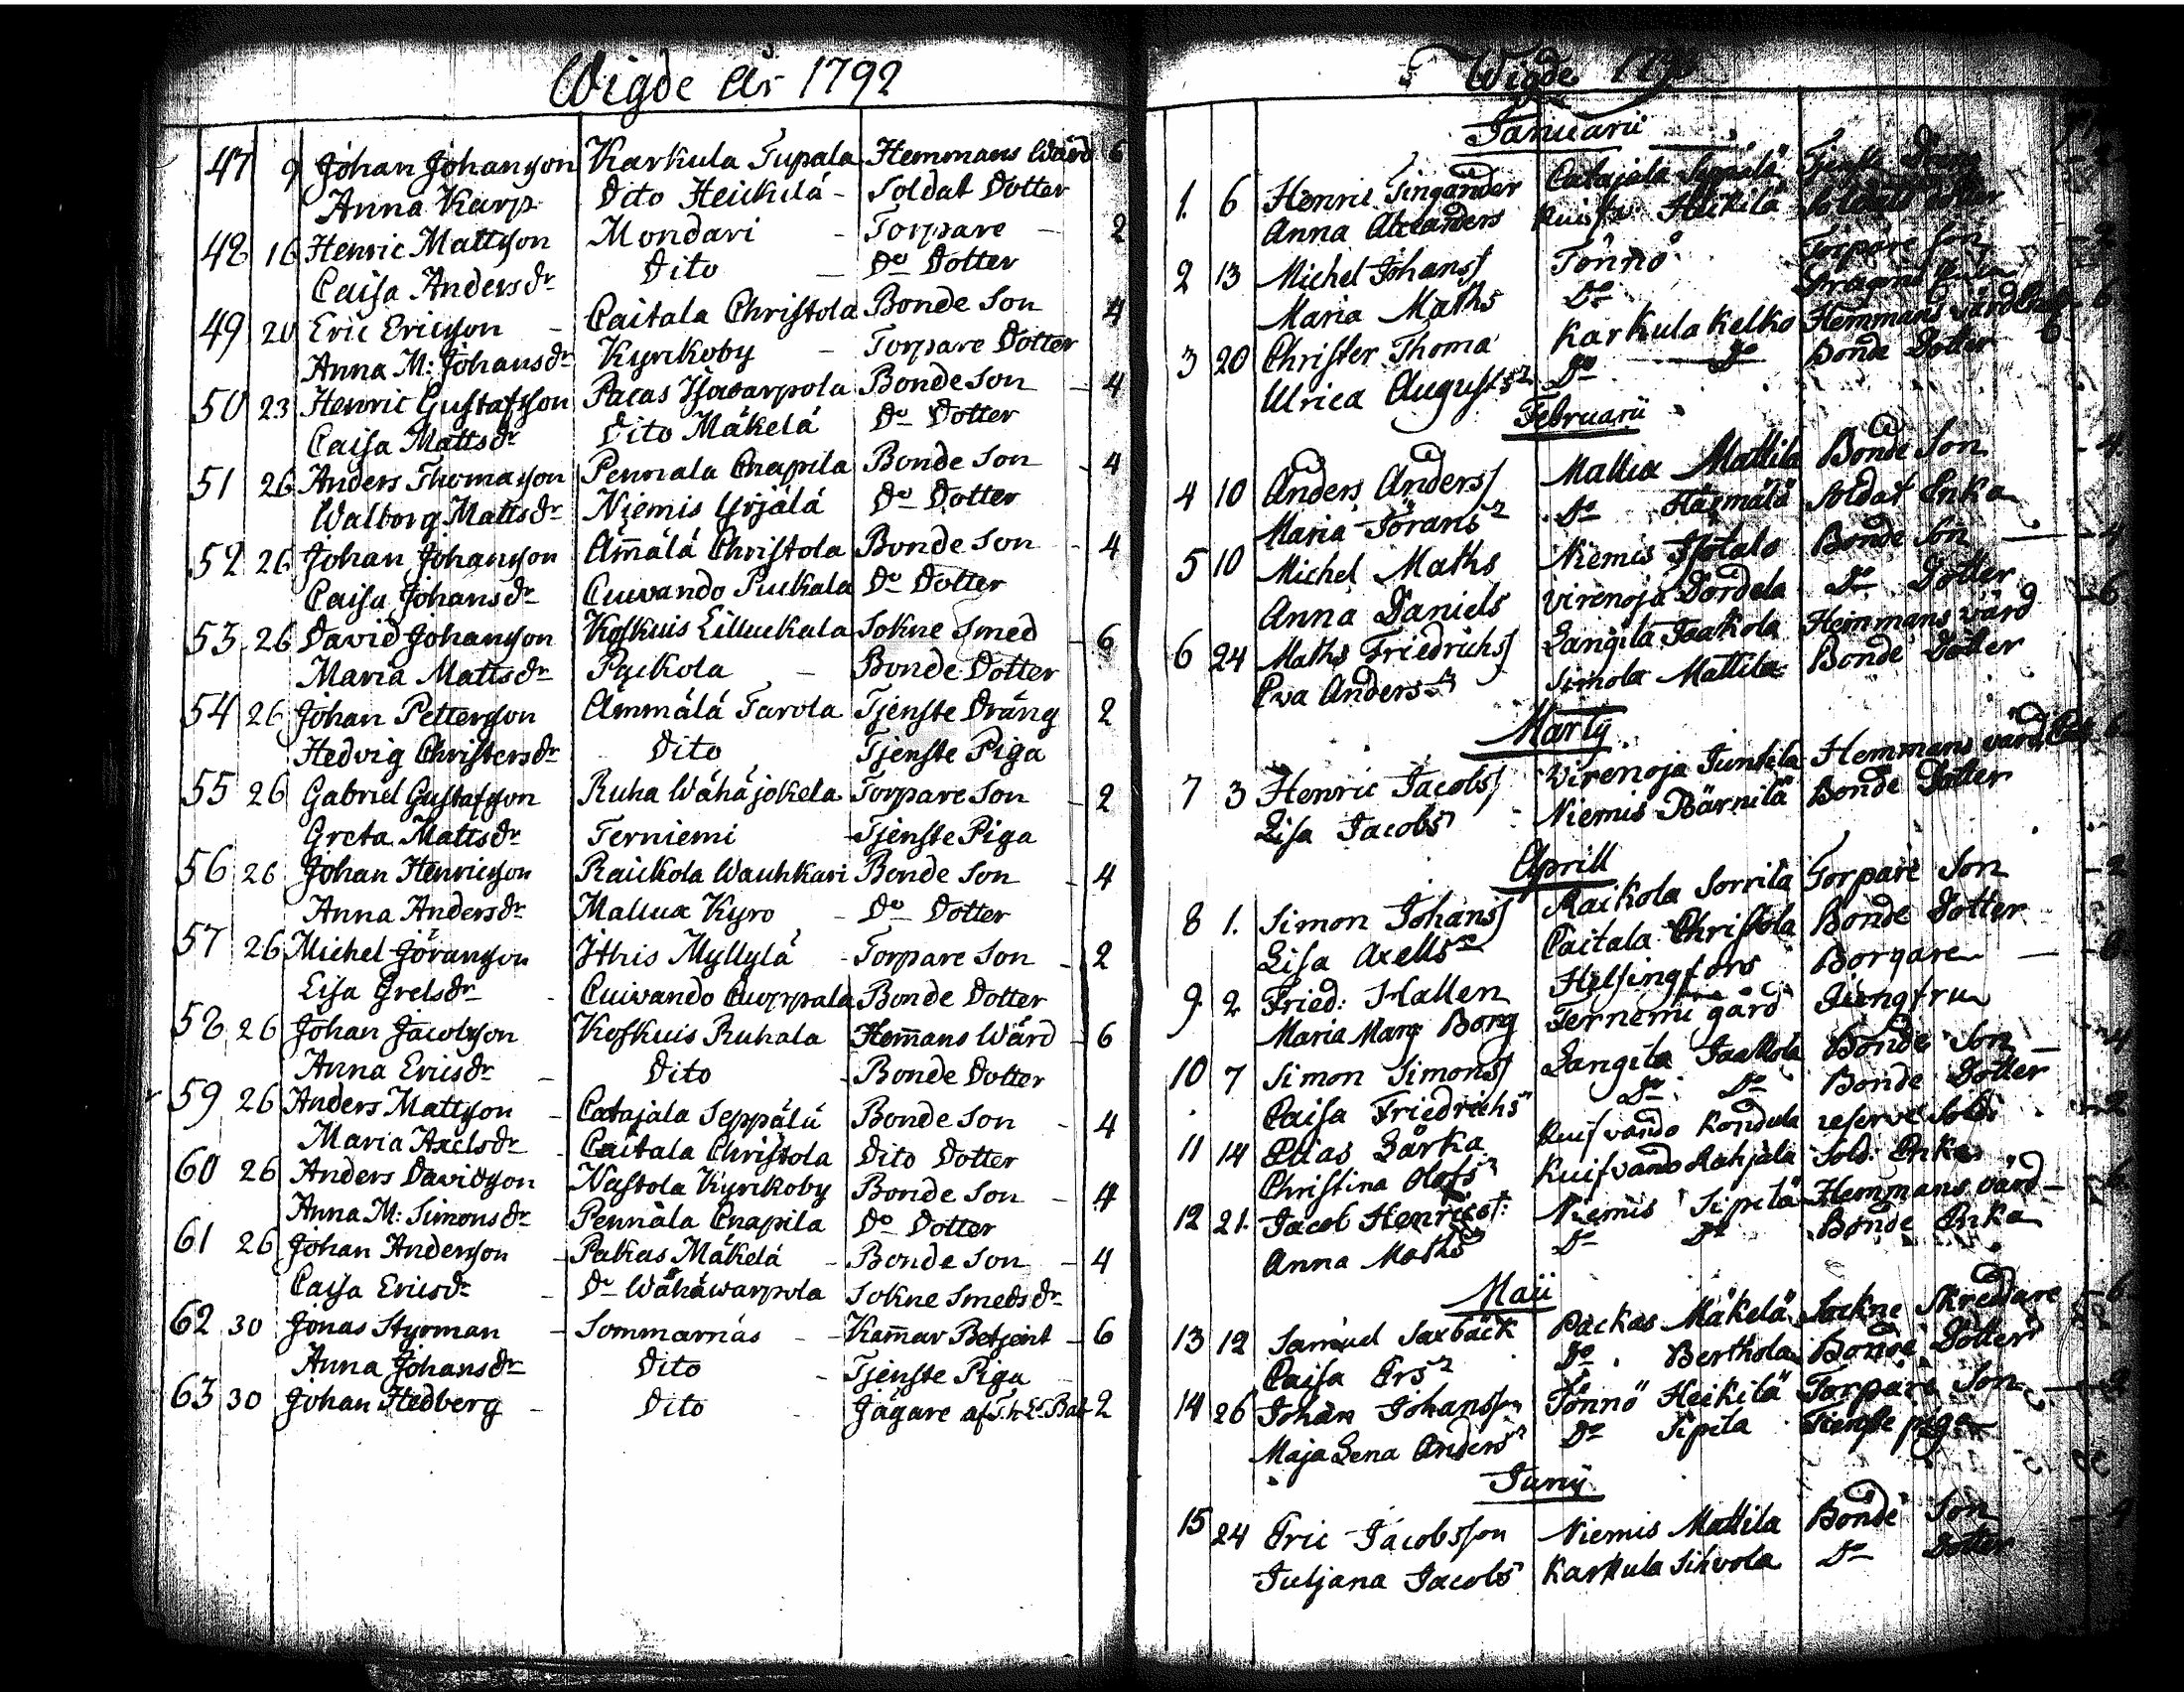 Wigde År 1792
47 9 Johan Johansson Karkula Tupala Hemmans Wärd 6
Anna Karp Dito Heickilä - Soldat Dotter
48 16 Henric Mattsson Mondari - Torpare - 2
Caisa Andersdr Dito - Do Dotter
49 20 Eric Ericsson - Caitala Christola Bonde Son 4
Anna M: Johansdr Kyrckoby - Torpare Dotter
50 23 Henric Gustafsson Pacas Isowarpola Bonde Son - 4
Caisa Mattsdr Dito Mäkelä Do Dotter
51 26 Anders Thomasson Pennala Anapila Bonde Son - 4
Walborg Mattsdr Niemis Yrjälä Do Dotter
52 26 Johan Johansson Am̄älä Christola Bonde Son - 4
Caisa Johansdr Cuivando Puckala Do Dotter
53 26 David Johansson Koskuis Lilluckala Sokne Smed - 6
Maria Mattsdr Pyckola - Bonde Dotter
54 26 Johan Pettersson Ammälä Tarola Tjenste Dräng 2
Hedvig Christersdr Dito Tjenste Piga
55 26 Gabriel Gustafsson Ruha Wähäjokela Torpare Son - 2
Greta Mattsdr Terniemi - Tjenste Piga
56 26 Johan Henricsson Raickola Wauhkari Bonde Son - 4
Anna Andersdr Mallux Kyro - Do Dotter
57 26 Michel Göransson Ithis Myllylä - Torpare Son - 2
Lisa Grelsdr - Cuivando Cuoppala Bonde Dotter
58 26 Johan Jacobsson Koskuis Ruhala Hem̄ans Wärd - 6
Anna Ericsdr - Dito - Bonde Dotter
59 26 Anders Mattsson - Catajala Seppälä Bonde Son - 4
Maria Axelsdr - Caitala Christola Dito Dotter
60 26 Anders Davidsson Nastola Kyrckoby Bonde Son - 4
Anna M: Simonsdr Pennala Anapila Do Dotter
61 26 Johan Andersson - Pakas Mäkelä - Bonde Son - 4
Caisa Ericsdr - Do Wähäwarpola Sokne Smedsdr
62 30 Jonas Styrman - Sommarnäs - Kam̄ar Betjent - 6
Anna Johansdr Dito - Tjenste Piga
63 30 Johan Hedberg - Dito - Jägare af T. h. L. Bat 2
Wigde
Januarii
1. 6 Henric Tingander Catajala Seppälä Tjenste Dräng - 2
Anna Alexanders Heikilä Soldate dotter
2 13 Michel Johanss Tönnö Torpare Son - 2
Maria Maths Do
3 20 Christer Thoma Karkula Kelko Hemmans värd 6
Ulrica Augusts Do Do Bonde Dotter
Februarii
4 10 Anders Anderss Mallux Mattila Bonde Son - 4
Maria Jörans Do Soldat Enka
5 10 Michel Maths Niemis Isotalo Bonde Son - 4
Anna Daniels Virenoja Dordela Do Dotter
6 24 Maths Friedrichss Langila Jaakola Hemmans värd - 6
Eva Anders Simola Mattila Bonde Dotter
Martÿ
7 3 Henric Jacobss Virenoja Juntila Hemmans värd 6
Lisa Jacobs Niemis Pärnilä Bonde Dotter
Aprill
8 1. Simon Johanss Raikola Sorrila Torpare Son - 2
Lisa Axells Caitala Christola Bonde Dotter
9 2 Fried: Hallen Helsingfors Borgare - 6
Maria Marg Borg Ternemi gård Jungfru
10 7 Simon Simonss Langila Jaakola Bonde Son - 4
Caisa Friedrichs Do Do Bonde Dotter
11 14 Elias Lärka Kuifvando Kondula reserve Sold: - 2
Christina Olofs Kuifvando Rahjala Sold: Enka
12 21. Jacob Henricss: Niemis Sipilä Hemmans värd - 6
Anna Maths Do Do Bonde Enka
Maii
13 12 Samuel Saxbäck Packas Mäkelä Sockne Skreddare - 6
Caisa Ers Do Berthola Bonde Dotter
14 26 Johan Johansson Tönnö Heikilä Torpare Son - 2
Maja Lena Anders Do Sipila Tienste piga
Junÿ
15 24 Eric Jacobsson Niemis Mattila Bonde Son - 4
Juljana Jacobs Karkula Sihvola Do Dotter